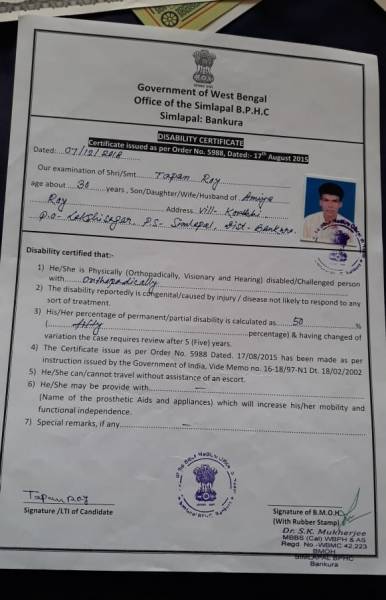 Government of West Bengal
Office of the Simlapal B.P.H.C
Simlapal: Bankura
DISABILITY CERTIFICATE
Certificate issued as per Order No. 5988, Dated:- 17th August 2015
Dated: 07/12/2018
Our examination of Shri/Smt Tapan Roy
age about 30 years, Son/Daughter/Wife/Husband of Amiya
Roy Address Vill-
P.O- P.S- Simlapal, Dist- Bankura.
Disability certified that:-
1) He/She is Physically (Orthopadically, Visionary and Hearing) disabled/Challenged person
with Orthopadically
2) The disability reportedly is congenital/caused by injury / disease not likely to respond to any
sort of treatment.
3) His/Her percentage of permanent/partial disability is calculated as 50 %
( fifty percentage) & having changed of
variation the case requires review after 5 (Five) years.
4) The Certificate issue as per Order No. 5988 Dated. 17/08/2015 has been made as per
instruction issued by the Government of India, Vide Memo no. 16-18/97-N1 Dt. 18/02/2002
5) He/She can/cannot travel without assistance of an escort.
6) He/She may be provide with
(Name of the prosthetic Aids and appliances) which will increase his/her mobility and
functional independence.
7) Special remarks, if any
Tapan Roy
Signature /LTI of Candidate
Signature of B.M.O.H.
(With Rubber Stamp)
Dr. S.K. Mukherjee
MBBS (Cal) WBPH & AS
Regd. No.-WBMC 42,223
BMOH
SIMLAPAL BPHC
Bankura